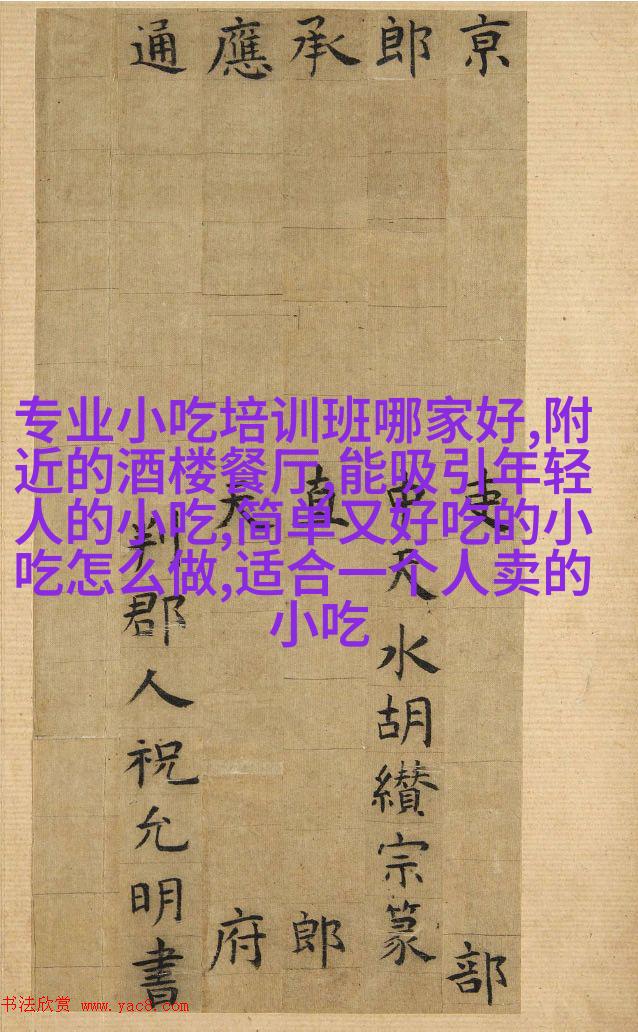 京吏部
郎中天水胡纘宗篆
承直郎
應天府
通判郡人祝允明書
专业小吃培训班哪家好,附
近的酒楼餐厅,能吸引年轻
人的小吃,简单又好吃的小
吃怎么做,适合一个人卖的
小吃
书法欣赏 www.yac8.com